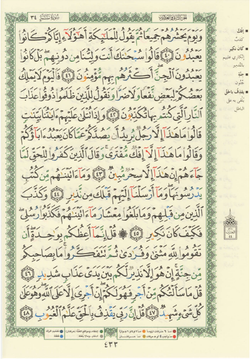 الجزء الثاني والعشرون سورة سبأ ٣٤
وَيَوْمَ يَحْشُرُهُمْ جَمِيعًا ثُمَّ يَقُولُ لِلْمَلَٰٓئِكَةِ أَهَٰٓؤُلَآءِ إِيَّاكُمْ كَانُوا۟
يَعْبُدُونَ ٤٠ قَالُوا۟ سُبْحَٰنَكَ أَنتَ وَلِيُّنَا مِن دُونِهِم بَلْ كَانُوا۟
يَعْبُدُونَ ٱلْجِنَّ أَكْثَرُهُم بِهِم مُّؤْمِنُونَ ٤١ فَٱلْيَوْمَ لَا يَمْلِكُ
بَعْضُكُمْ لِبَعْضٍ نَّفْعًا وَلَا ضَرًّا وَنَقُولُ لِلَّذِينَ ظَلَمُوا۟ ذُوقُوا۟ عَذَابَ
ٱلنَّارِ ٱلَّتِى كُنتُم بِهَا تُكَذِّبُونَ ٤٢ وَإِذَا تُتْلَىٰ عَلَيْهِمْ ءَايَٰتُنَا بَيِّنَٰتٍ
قَالُوا۟ مَا هَٰذَآ إِلَّا رَجُلٌ يُرِيدُ أَن يَصُدَّكُمْ عَمَّا كَانَ يَعْبُدُ ءَابَآؤُكُمْ
وَقَالُوا۟ مَا هَٰذَآ إِلَّآ إِفْكٌ مُّفْتَرًى وَقَالَ ٱلَّذِينَ كَفَرُوا۟ لِلْحَقِّ لَمَّا
جَآءَهُمْ إِنْ هَٰذَآ إِلَّا سِحْرٌ مُّبِينٌ ٤٣ وَمَآ ءَاتَيْنَٰهُم مِّن كُتُبٍ
يَدْرُسُونَهَا وَمَآ أَرْسَلْنَآ إِلَيْهِمْ قَبْلَكَ مِن نَّذِيرٍ ٤٤ وَكَذَّبَ
ٱلَّذِينَ مِن قَبْلِهِمْ وَمَا بَلَغُوا۟ مِعْشَارَ مَآ ءَاتَيْنَٰهُمْ فَكَذَّبُوا۟ رُسُلِى
فَكَيْفَ كَانَ نَكِيرِ ٤٥ قُلْ إِنَّمَآ أَعِظُكُم بِوَٰحِدَةٍ أَن
تَقُومُوا۟ لِلَّهِ مَثْنَىٰ وَفُرَٰدَىٰ ثُمَّ تَتَفَكَّرُوا۟ مَا بِصَاحِبِكُم
مِّن جِنَّةٍ إِنْ هُوَ إِلَّا نَذِيرٌ لَّكُم بَيْنَ يَدَىْ عَذَابٍ شَدِيدٍ ٤٦
قُلْ مَا سَأَلْتُكُم مِّنْ أَجْرٍ فَهُوَ لَكُمْ إِنْ أَجْرِىَ إِلَّا عَلَى ٱللَّهِ وَهُوَ عَلَىٰ
كُلِّ شَىْءٍ شَهِيدٌ ٤٧ قُلْ إِنَّ رَبِّى يَقْذِفُ بِٱلْحَقِّ عَلَّٰمُ ٱلْغُيُوبِ ٤٨
٤٣٣